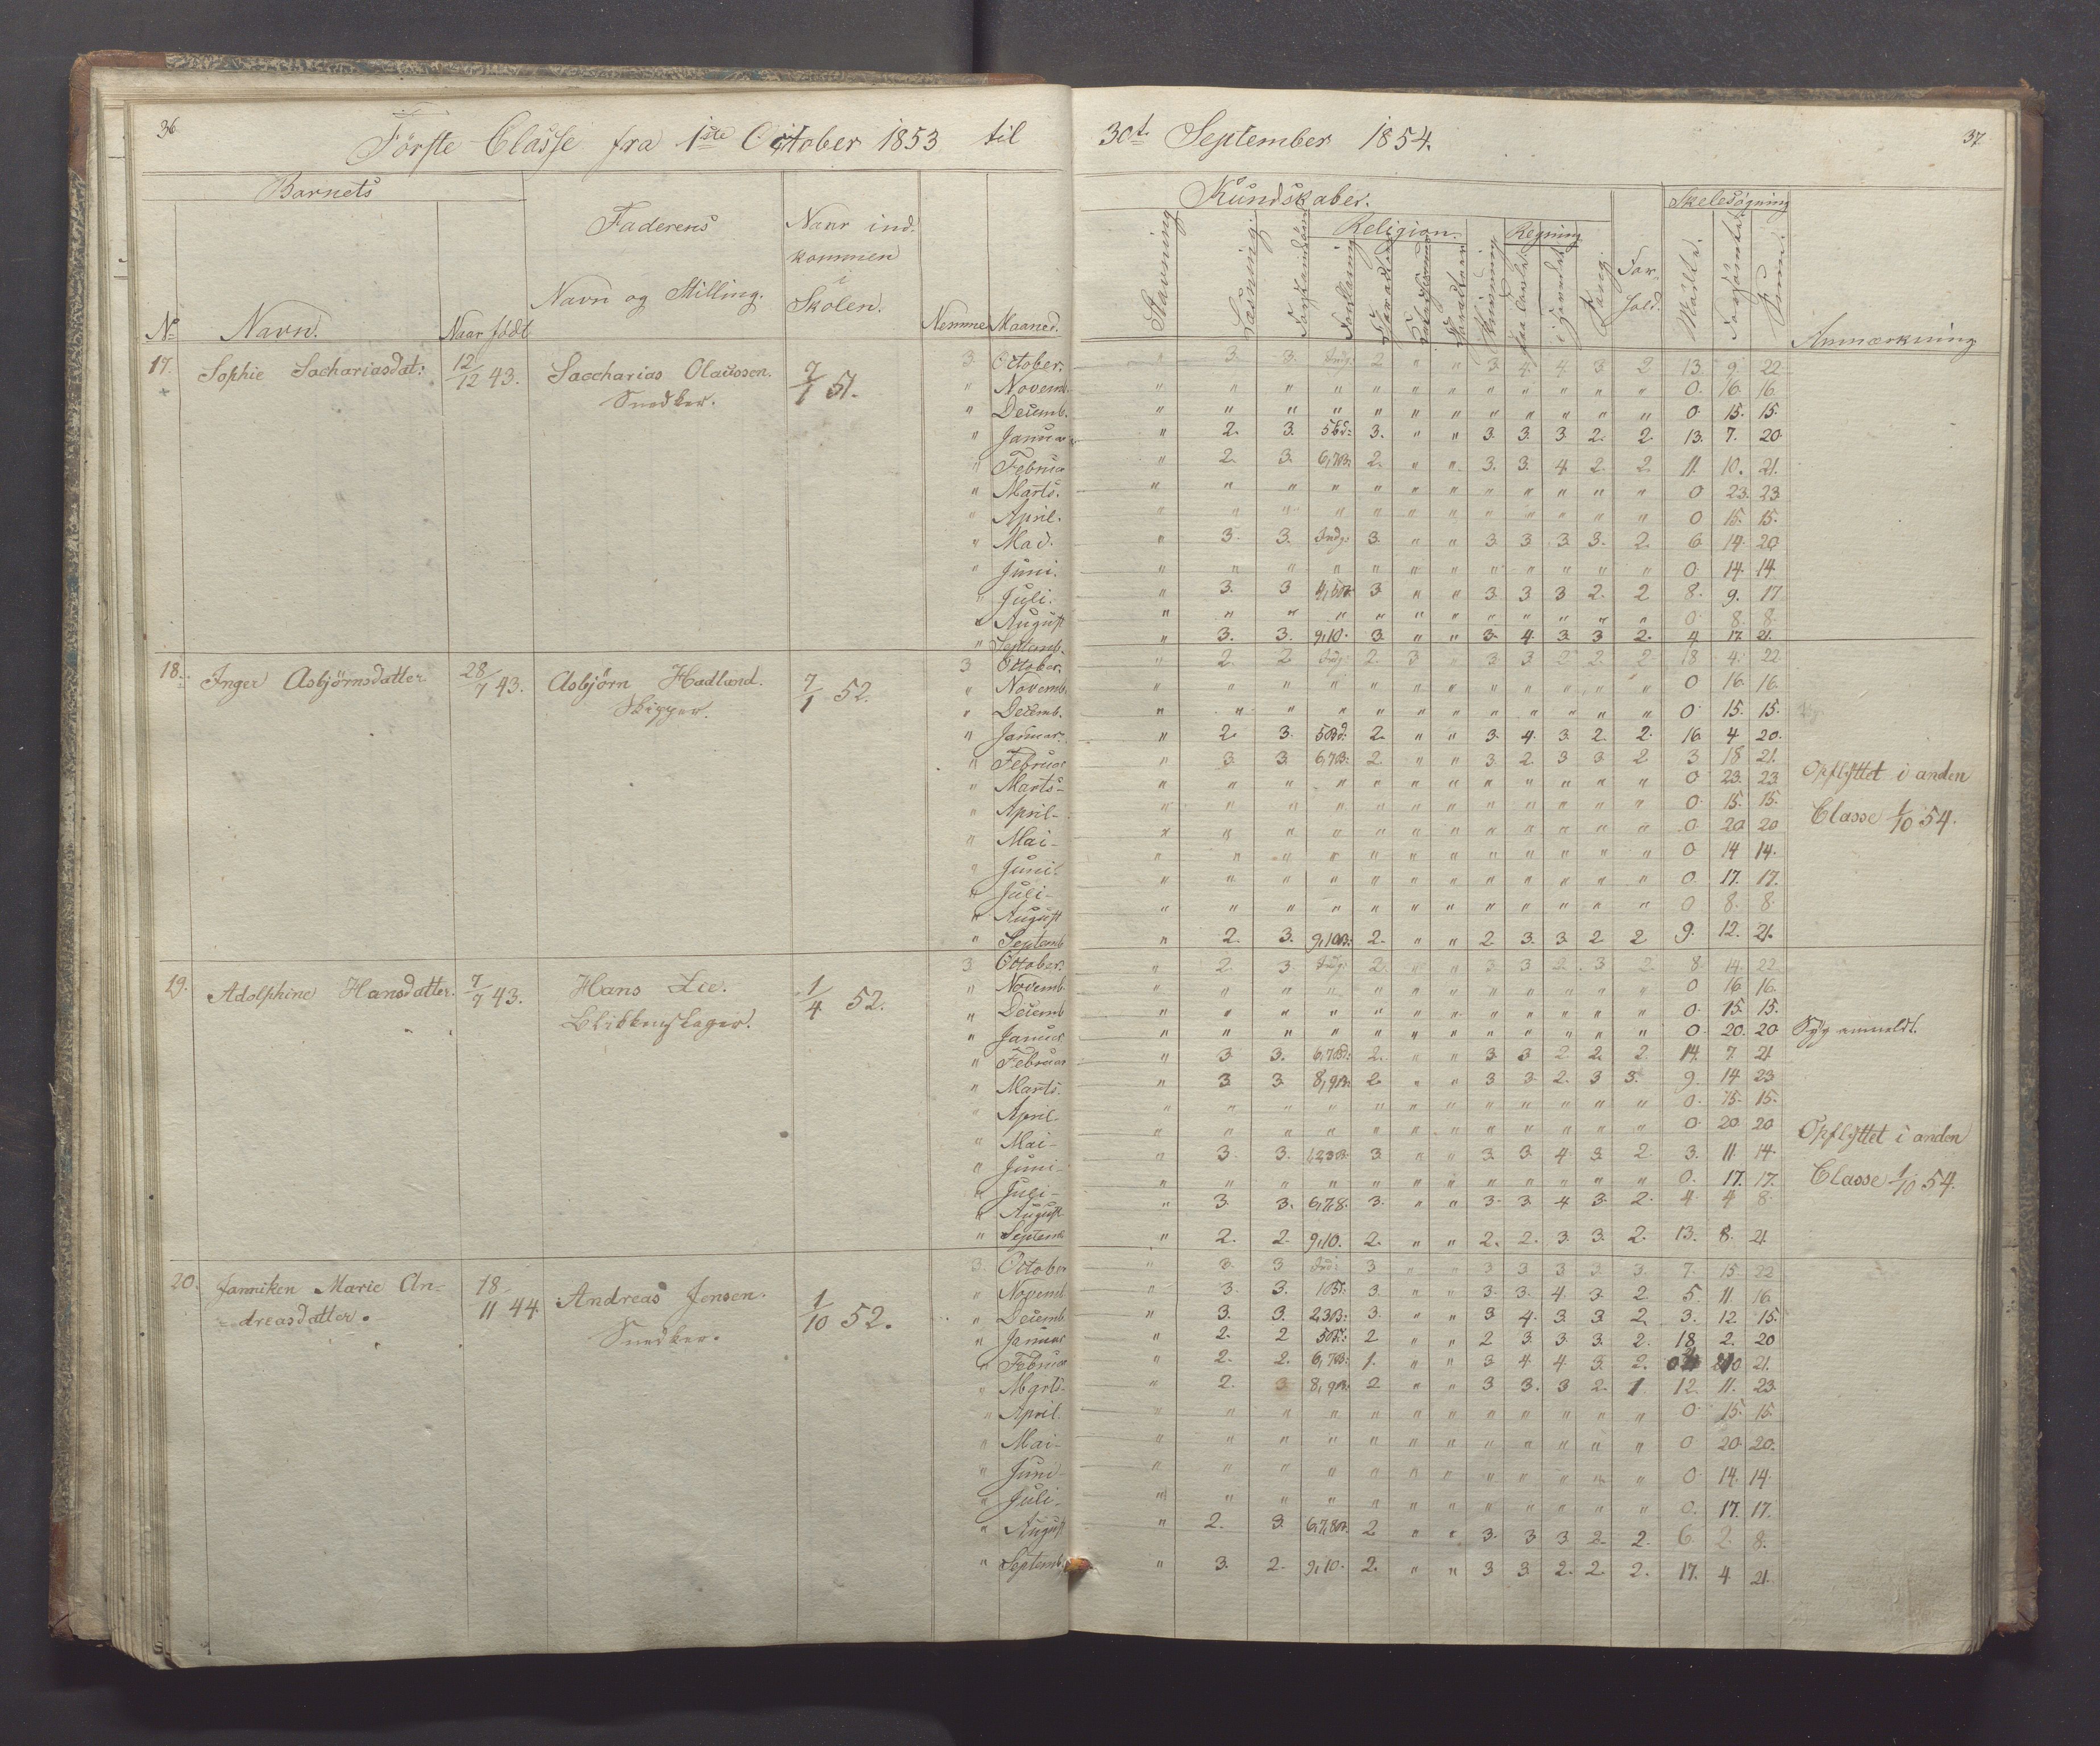 36.
Förste Classe fra 1ste October 1853 til
30t. September 1854.
37
Barnets
Faderens
Naar ind-
kommen
i
Skolen.
Navn og Stilling.
No Navn. Naar födt Nemme Maaned.
Kundskaber.
Religion.
Regning
Skolesøgning
Stavning Læsning
Sang
For-
hold.
Mødte. Forsømte Sum.
Anmærkning
17. Sophie Sachariasdat: 12/12 43. Saccharias Olaussen. 7/1 51.
Snedker.
3. October. " 3. 3. Indg. 2 " " 3. 4. 4. 3. 2 13. 9. 22
" Novemb. " " " " " " " " " " " " 0. 16. 16.
" Decemb. " " " " " " " " " " " " 0. 15. 15.
" Januar " 2. 3. 5Bd: 3. " " 3. 3. 3. 2. 2. 13. 7. 20.
" Februar " 2. 3. 6,7B: 2. " " 3. 3. 4. 2. 2. 11. 10. 21.
" Marts. " " " " " " " " " " " " 0 23. 23
" April. " " " " " " " " " " " " 0 15. 15.
" Mai. " 3. 3. Indg. 3. " " 3. 3 3 3. 3. 2. 6. 14. 20
" Juni. " " " " " " " " " " " " 0. 14. 14.
" Juli. " 3. 3 3 " " 3. 3 3 2. 2 8. 9. 17
" August " " " " " " " " " " " " 0. 8. 8.
" Septemb. " 3. 3. 9,10. 3. " " 3. 4. 3. 3 2. 4. 17. 21.
18. Inger Asbjörnsdatter 28/7 43. Asbjörn Hadland. 7/1 52.
Skipper.
3 October. " 2. 2 Indg. 2. 3 3 3 2 2. 2. 18 4. 22.
" Novemb. " " " " " " " " " " " " 0 16. 16.
" Decemb. " " " " " " " " " " " " 0. 15. 15.
" Januar. " 2. 3. 5Bd: 2. " " 3. 4. 3. 2. 2. 16. 4 20.
" Februar " 3. 3 6,7B: 2. " " 3 2. 3 3 2 3 18 21.
" Marts- " " " " " " " " " " " " 0 23. 23
" April- " " " " " " " " " " " " 0. 15. 15.
" Mai- " " " " " " " " " " " " 0. 20. 20
" Juni. " " " " " " " " " " " " 0 14 14.
" Juli- " " " " " " " " " " " " 0. 17. 17.
" August " " " " " " " " " " " " 0 8. 8
" Septemb " 2. 3. 9,10B: 2. " " 2. 3. 3. 2 2 9. 12. 21.
Opflyttet i anden
Classe 1/10 54.
19. Adolphine Hansdatter. 7/7 43. Hans Lie. 1/4 52.
Blikkenslager.
3. October. " 2. 3 Indg. 2. " " 3. 3 2. 3 2. 8. 14. 22
" Novemb " " " " " " " " " " " " 0 16 16.
" Decemb " " " " " " " " " " " " 0. 15. 15.
" Januar " " " " " " " " " " " " 0. 20. 20 Syg anmeldt.
" Februar " 3. 3. 6,7Bd: 2. " " 3. 3 2. 2. 2. 14. 7. 21
" Marts. " 3 3. 8,9B. 2. " " 3 3. 2. 3 3. 9. 14 23
" April " " " " " " " " " " " " 0. 15. 15.
" Mai- " " " " " " " " " " " " 0. 20. 20
" Juni- " 3. 3. 1,2,3B. 3. " " 3. 3. 4. 3. 2 3. 11. 14.
" Juli- " " " " " " " " " " " " 0. 17. 17.
" August " 3. 3. 6,7,8. 3. " " 3. 3. 4 3. 2. 4. 4 8.
" Septemb " 2. 2. 9,10. 2. " " 2. 2. 3. 3. 2. 13. 8. 21
Opflyttet i anden
Classe 1/10 54.
20. Janniken Marie An- 18/11 44. Andreas Jensen. 1/10 52.
=dreasdatter. Snedker.
3. October " 3. 3 Indg. 3 " " 3 3 3 3. 3. 7. 15. 22
" Novemb " 3. 3. 3. " " 3. 3. 4. 3. 2 5. 11. 16.
" Decemb " 3. 3. 2,3B: 3. " " 3 4. 3. 3 2. 3. 12. 15.
" Januar " 2. 2 2 " " 2 3 3. 3. 2. 18. 2. 20
" Februar " 2. 2. 6,7B: 1. " " 3 4 4. 3. 2. 21.
" Marts. " 2. 3 8,9B. 2 " " 3 3. 3 2. 1. 12. 11. 23
" April. " " " " " " " " " " " " 0. 15. 15.
" Mai- " " " " " " " " " " " " 0 20. 20.
" Juni- " " " " " " " " " " " " 0. 14. 14.
" Juli- " " " " " " " " " " " " 0. 17. 17.
" August " 2. 3. 6,7,8B. 2 " " 3. 3 3 2. 2. 6. 2. 8.
" Septemb. " 3. 2. 9,10. 2. " " 3 3. 2. 2. 2. 17. 4 21.